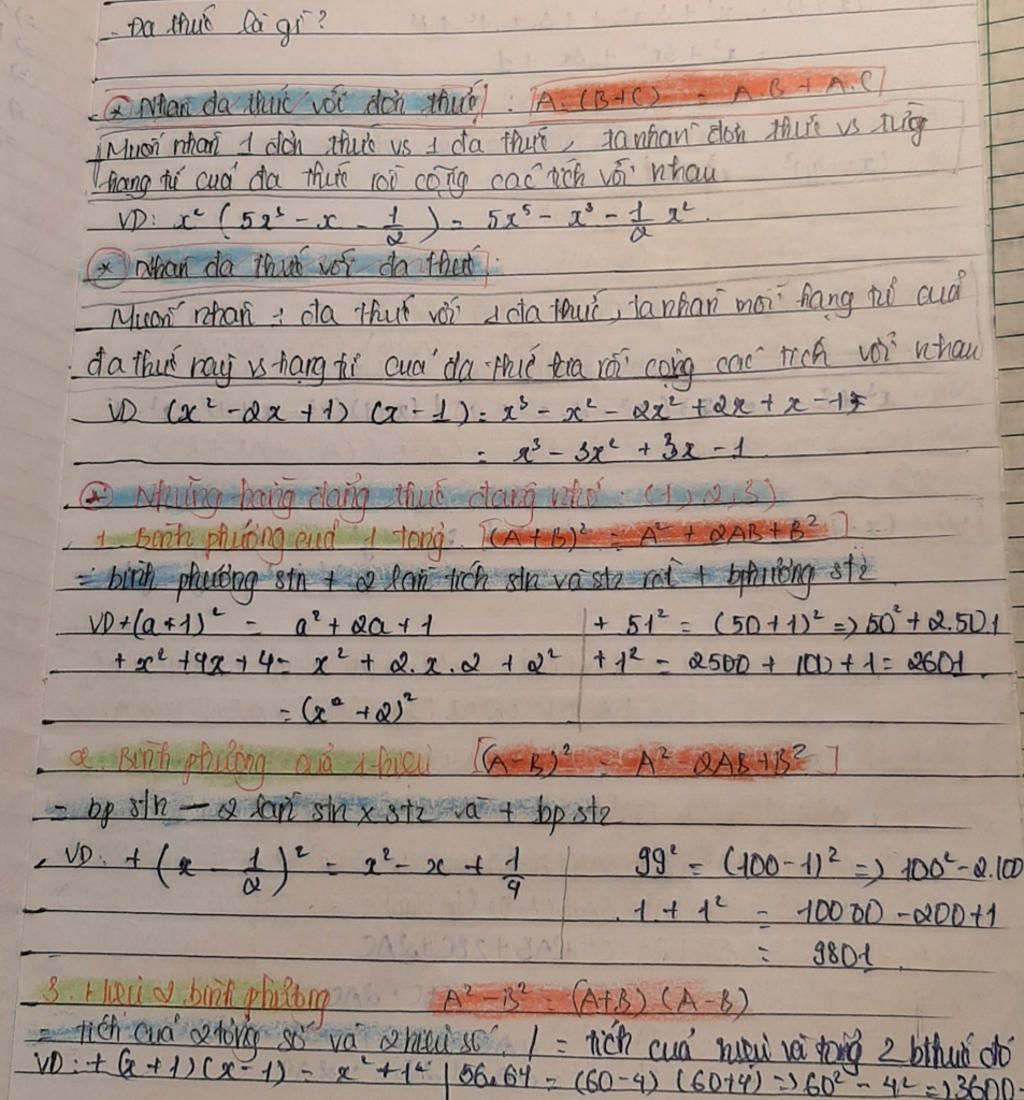 - Đa thức là gì?
* Nhân đa thức với đơn thức : A.(B+C) = A.B + A.C
Muốn nhân 1 đơn thức vs 1 đa thức, ta nhân đơn thức vs từng
hạng tử của đa thức rồi cộng các tích với nhau
VD: x² (5x³ - x - 1/2) = 5x⁵ - x³ - 1/2 x².
* Nhân đa thức với đa thức:
Muốn nhân 1 đa thức với 1 đa thức, ta nhân mỗi hạng tử của
đa thức này vs hạng tử của đa thức kia rồi cộng các tích với nhau
VD (x² - 2x + 1) (x - 1) = x³ - x² - 2x² + 2x + x - 1
= x³ - 3x² + 3x - 1
* Những hằng đẳng thức đáng nhớ : (1,2,3)
1. Bình phương của 1 tổng. [(A+B)² = A² + 2AB + B²]
= bình phương stn + 2 lần tích stn và st2 rồi + bphương st2
VD + (a+1)² = a² + 2a + 1 + 51² = (50+1)² => 50² + 2.50.1
+ x² + 4x + 4 = x² + 2.x.2 + 2² + 1² = 2500 + 100 + 1 = 2601
= (x² + 2)²
2. Bình phương của 1 hiệu [(A-B)² = A² - 2AB + B²]
= bp stn - 2 lần stn x st2 và + bp st2
VD: + (x - 1/2)² = x² - x + 1/4 99² = (100-1)² => 100² - 2.100
.1 + 1² = 10000 - 200 + 1
= 9801
3. Hiệu 2 bình phương A² - B² = (A+B) (A-B)
= tích của 2 tổng số và 2 hiệu số. / = tích của hiệu và tổng 2 bthức đó
VD: + (x+1) (x-1) = x² + 1² | 56.64 = (60-4) (60+4) => 60² - 4² => 3600 -